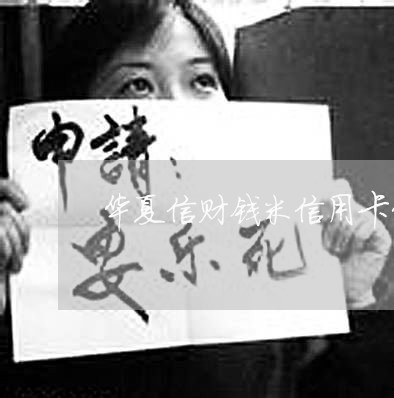 申請：
华夏信财钱米信用卡
要乐死